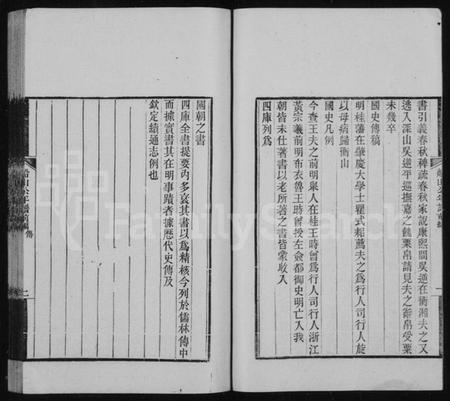 書引義春秋稗疏春秋家說康熙間吳逆在衡湘夫之又
逃入深山吳逆平巡撫嘉之餽粟帛請見夫之辭帛受粟
未幾卒
國史傳稿
明桂藩在肇慶大學士瞿式耜薦夫之為行人司行人旋
以母病歸衡山
國史凡例
今查王夫之前明舉人在桂王時曾為行人司行人浙江
黃宗羲前明布衣魯王時曾授左僉都御史明亡入我
朝皆未仕著書以老所著之書皆蒙收入
四庫列為
國朝之書
四庫全書提要內多裒其書以為精核今列於儒林傳中
而據實書其在明事蹟者據歷代史傳及
欽定續通志例也
二